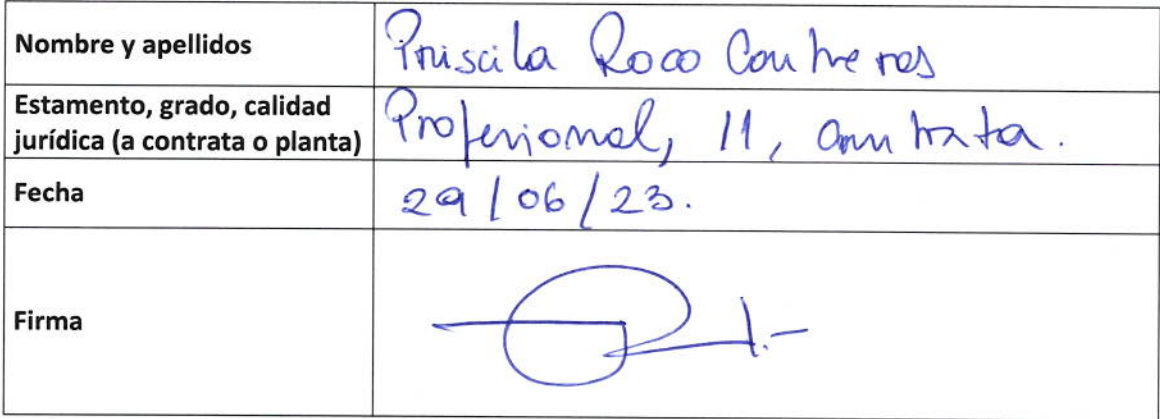 Nombre y apellidos
Priscila Roco Contreras
Estamento, grado, calidad
jurídica (a contrata o planta)
Profesional, 11, contrata.
Fecha
29/06/23.
Firma